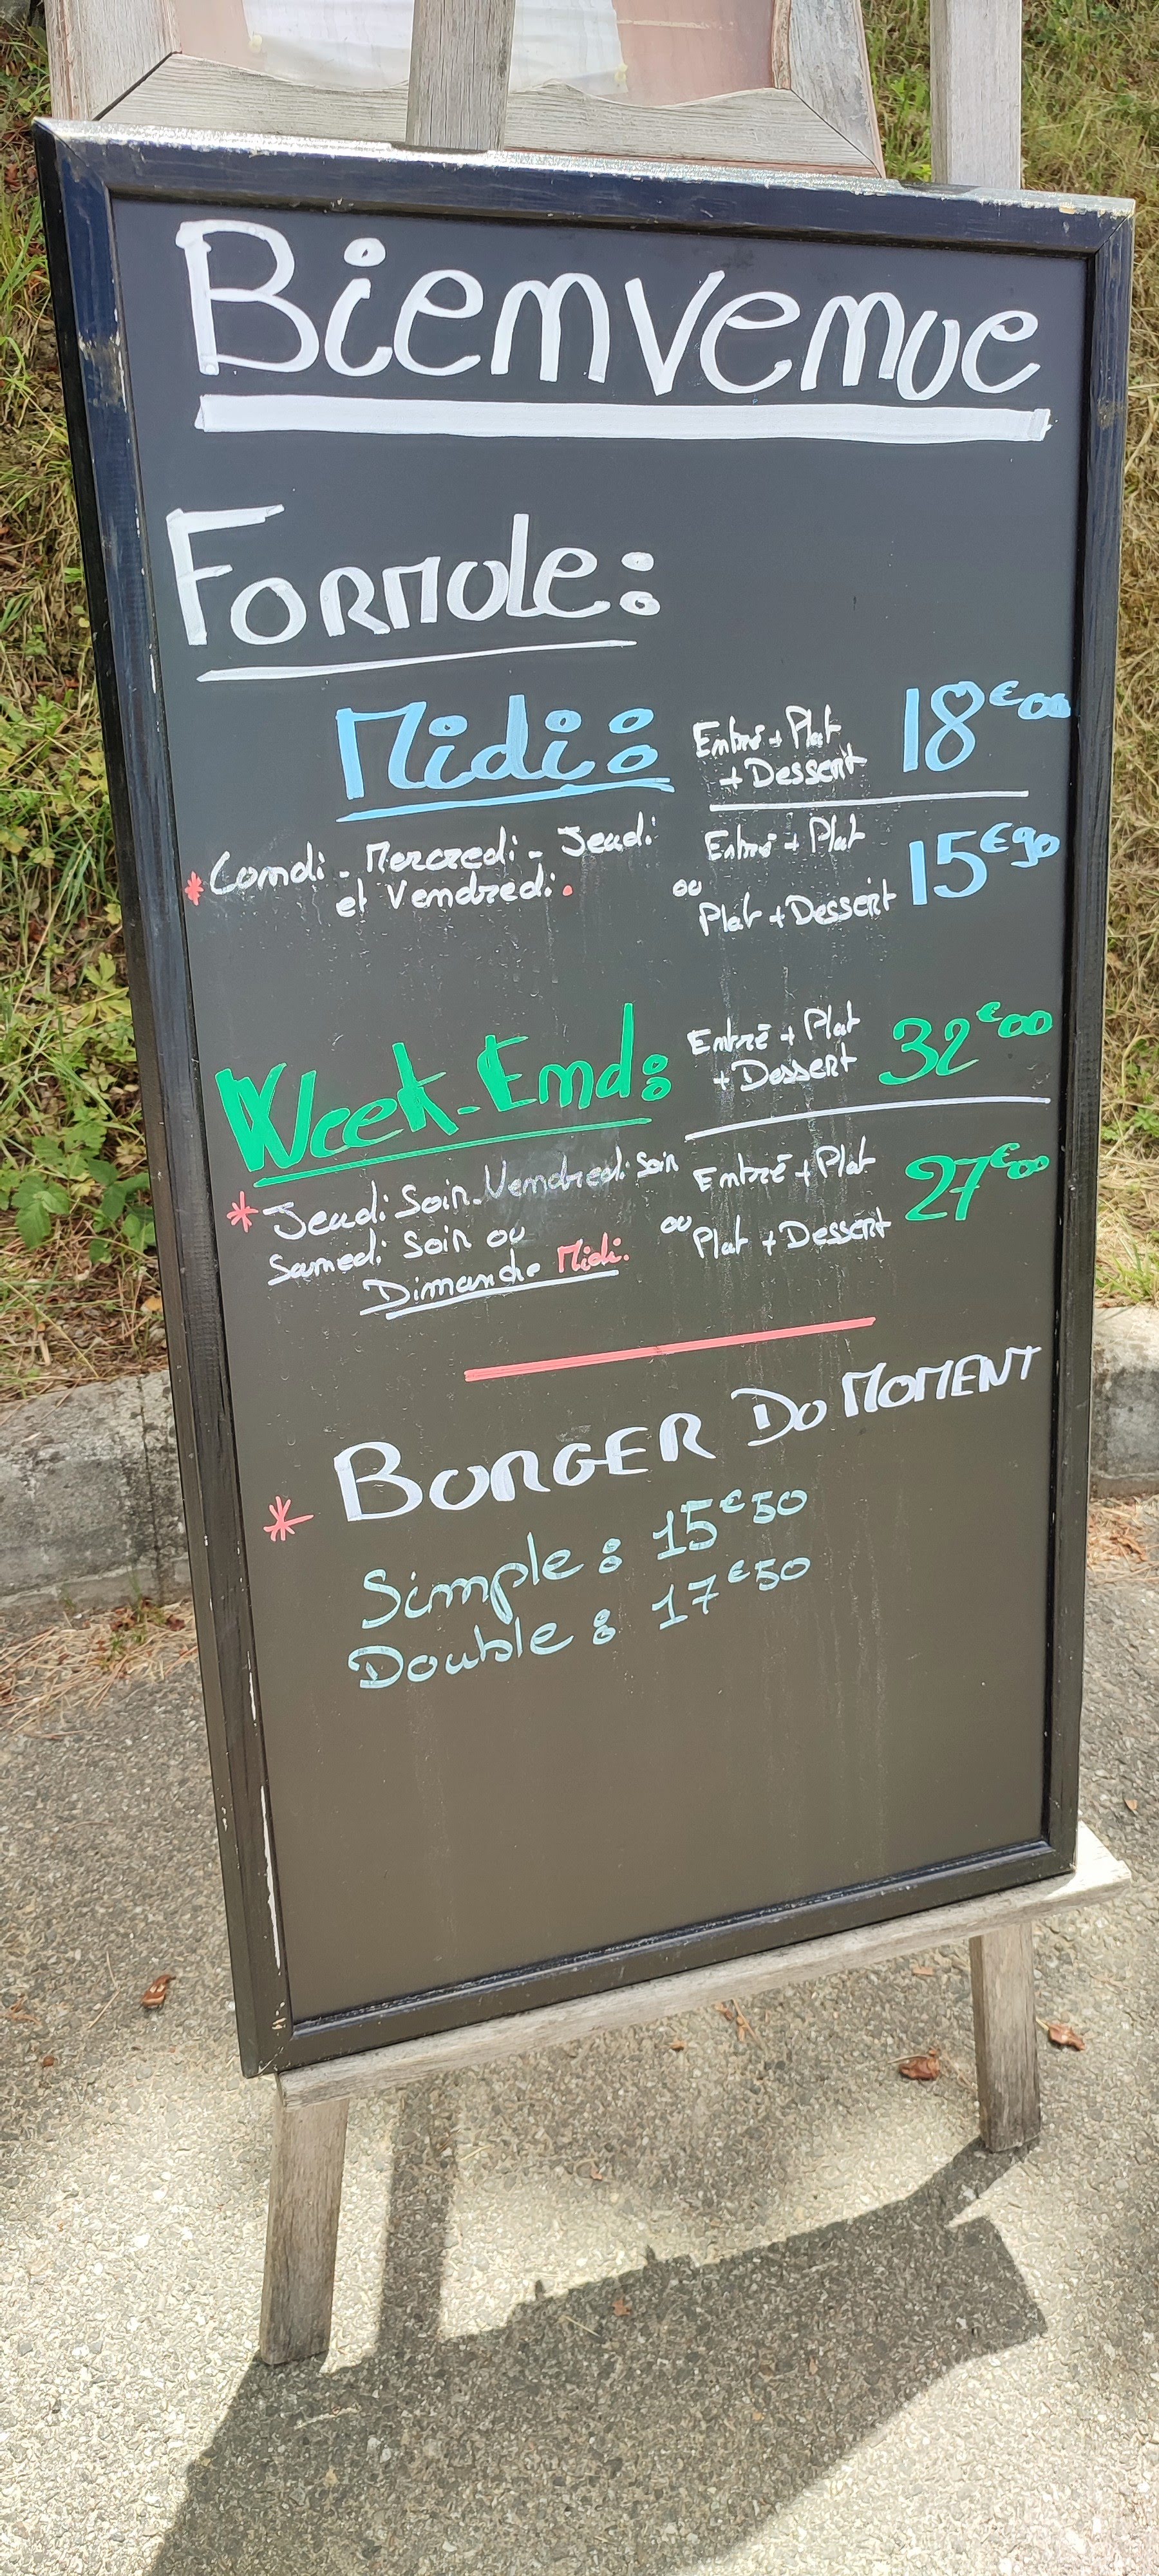 Bienvenue
Formule:
Midi:
Entré + Plat
+ Dessert
18€00
* Lundi - Mercredi - Jeudi
et Vendredi.
Entré + Plat
ou
Plat + Dessert
15€90
Week-End:
Entré + Plat
+ Dessert
32€00
* Jeudi Soir - Vendredi Soir
Samedi Soir ou
Dimanche Midi.
Entré + Plat
ou
Plat + Dessert
27€00
* BURGER DU MOMENT
Simple : 15€50
Double : 17€50